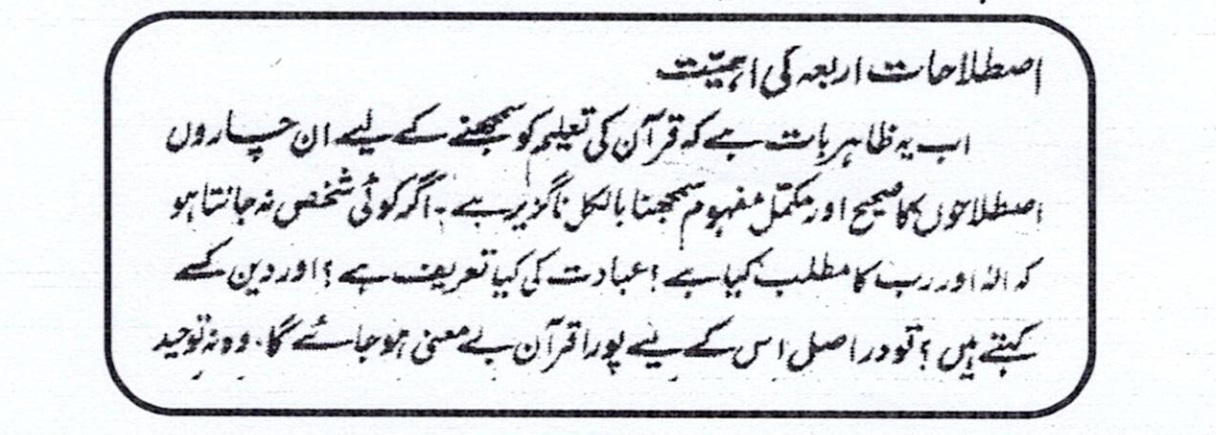 اصطلاحات اربعہ کی اہمیّت
اب یہ ظاہر بات ہے کہ قرآن کی تعلیم کو سمجھنے کے لیے ان چاروں
اصطلاحوں کا صحیح اور مکمّل مفہوم سمجھنا بالکل ناگزیر ہے۔ اگر کوئی شخص نہ جانتا ہو
کہ الٰہ اور رب کا مطلب کیا ہے؟ عبادت کی کیا تعریف ہے؟ اور دین کسے
کہتے ہیں؟ تو دراصل اس کے لیے پورا قرآن بے معنی ہو جائے گا۔ وہ نہ توحید